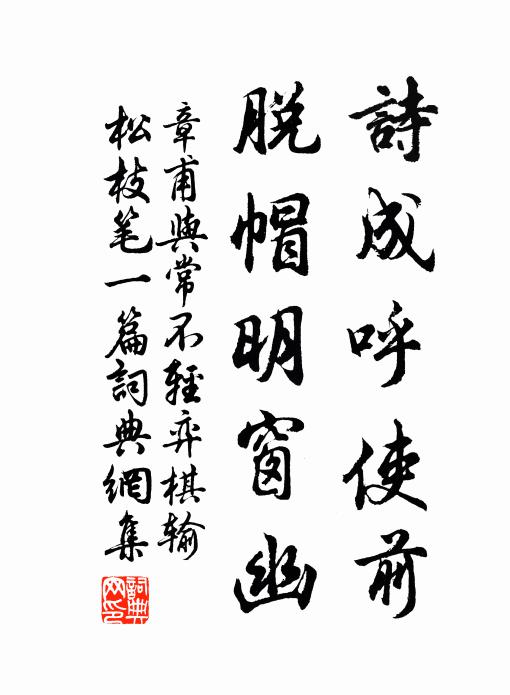 詩成呼使前
脱帽明窗幽
章甫與常不輕弈棋输
松枝笔一篇詞典網集
詞典网印